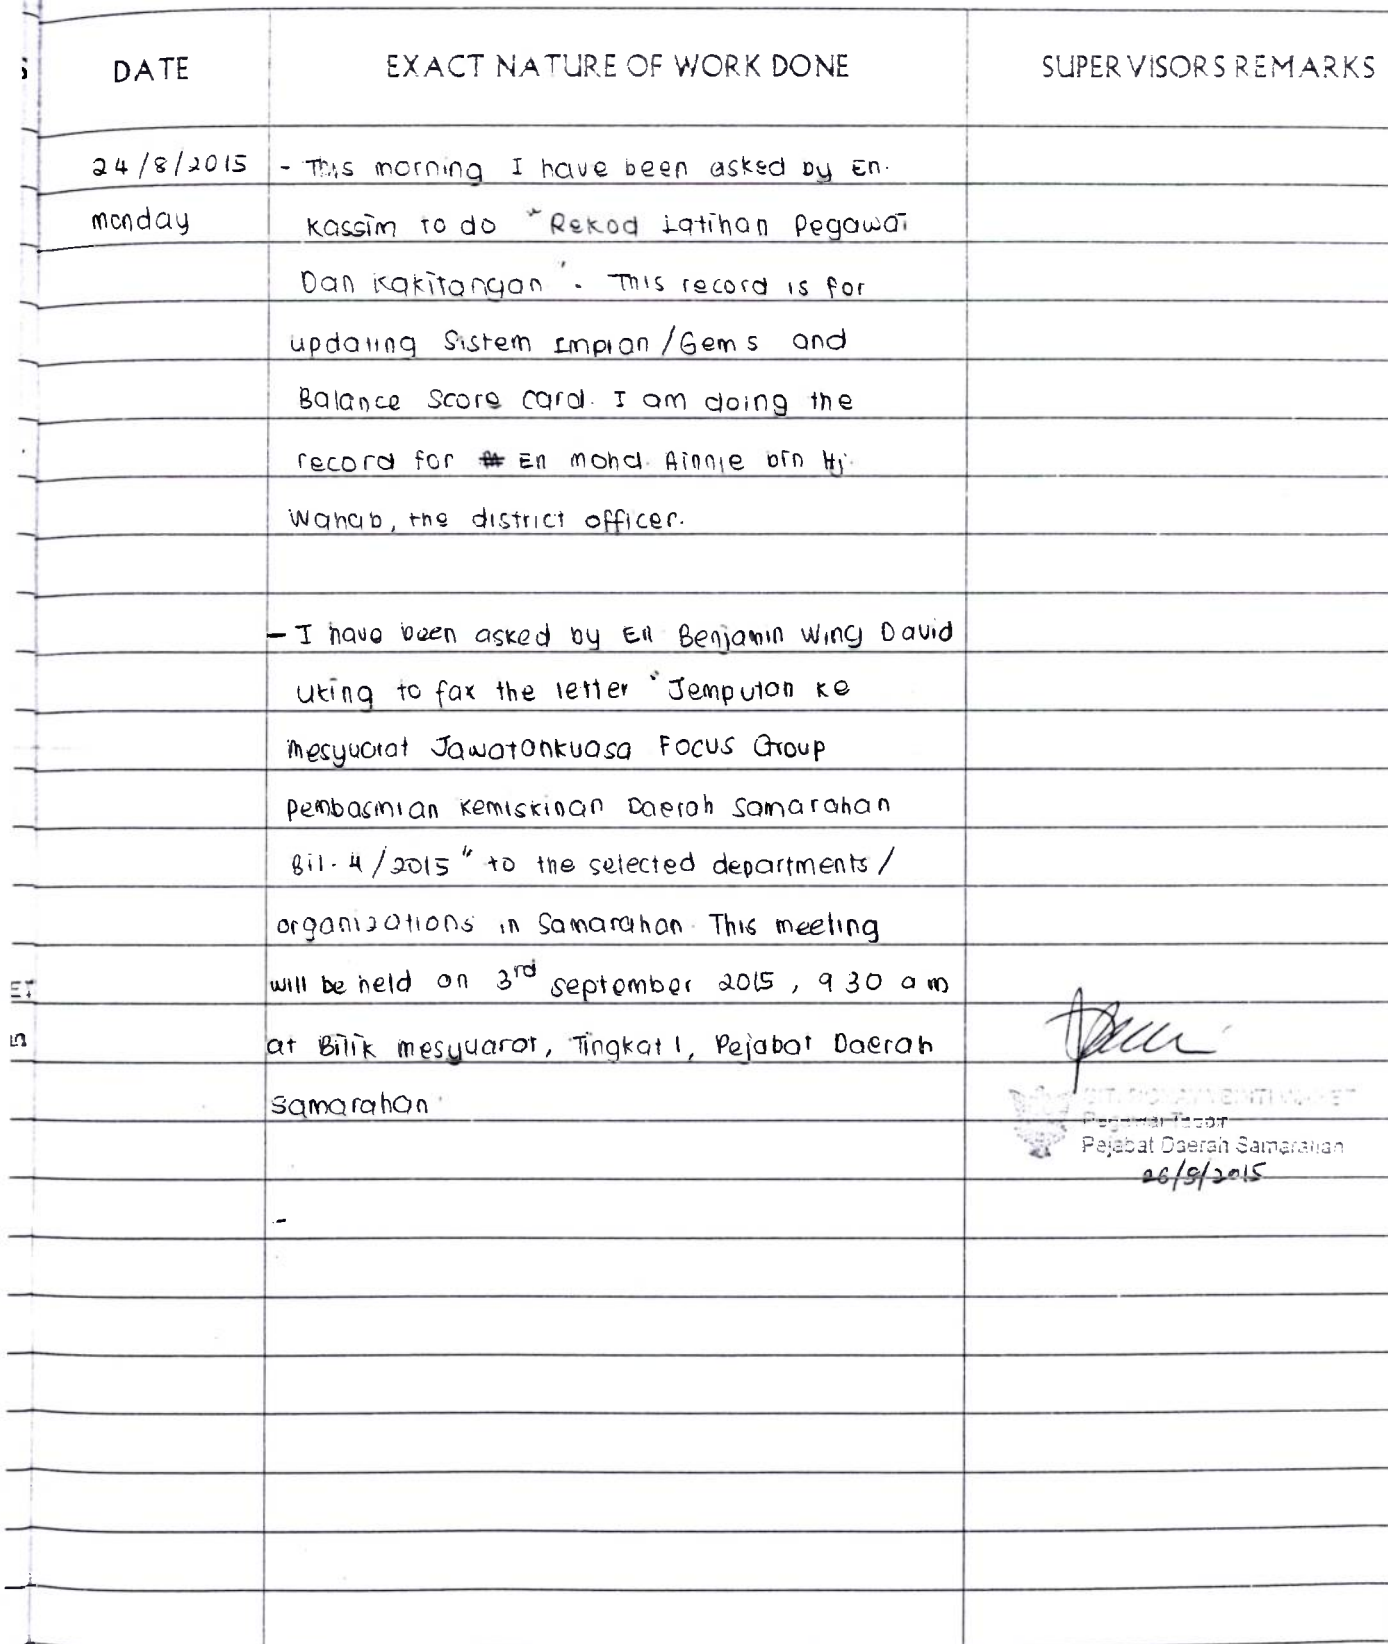 DATE EXACT NATURE OF WORK DONE SUPERVISORS REMARKS
24/8/2015 - This morning I have been asked by En.
monday Kassim to do "Rekod Latihan Pegawai
Dan Kakitangan". This record is for
updating Sistem Impian/Gems and
Balance Score Card. I am doing the
record for En Mohd. Ainnie bin Hj.
Wahab, the district officer.
- I have been asked by En Benjamin Wing David
Uking to fax the letter "Jemputan ke
mesyuarat Jawatankuasa Focus Group
Pembasmian Kemiskinan Daerah Samarahan
Bil. 4/2015" to the selected departments/
organizations in Samarahan. This meeting
will be held on 3rd september 2015, 9 30 am
at Bilik mesyuarat, Tingkat 1, Pejabat Daerah
Samarahan.
Pegawai Tadbir
Pejabat Daerah Samarahan
-